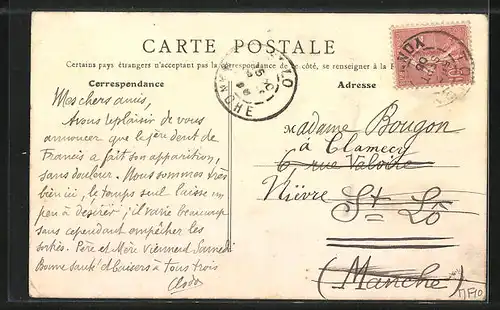 CARTE POSTALE
Certains pays étrangers n'acceptant pas la correspondance de ce côté, se renseigner à la
Correspondance
Adresse
Mes chers amis,
Nous plaisir de vous
annoncer que le 1ère dent de
Francis a fait son apparition,
sans douleur. Nous sommes très
bien ici, le temps seul laisse un
peu à désirer; il varie beaucoup
sans cependant empêcher les
sorties. Père et Mère viennent Samedi
Bonne santé et baisers à Tous trois
Madame Bougon
à Clamecy
6, rue Valoire
Nièvre
St Lô
(Manche)
LO
MANCHE